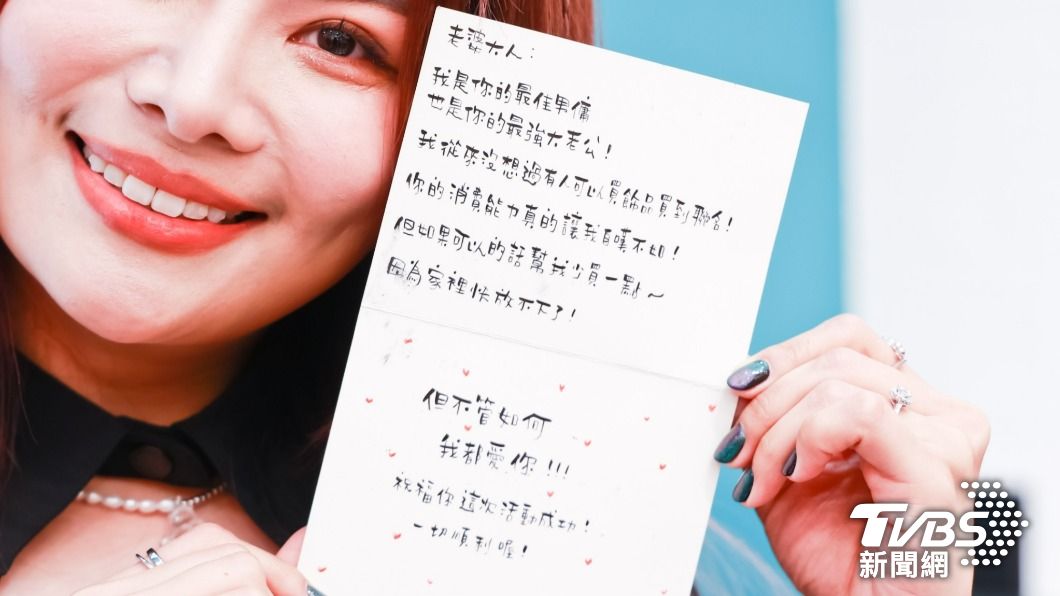 老婆大人：
我是你的最佳男傭
也是你的最強大老公！
我從來沒想過有人可以買飾品買到聯名！
你的消費能力真的讓我自嘆不如！
但如果可以的話幫我少買一點～
因為家裡快放不下了！
但不管如何
我都愛你!!!
祝福你這次活動成功！
一切順利喔！
TVBS
新聞網